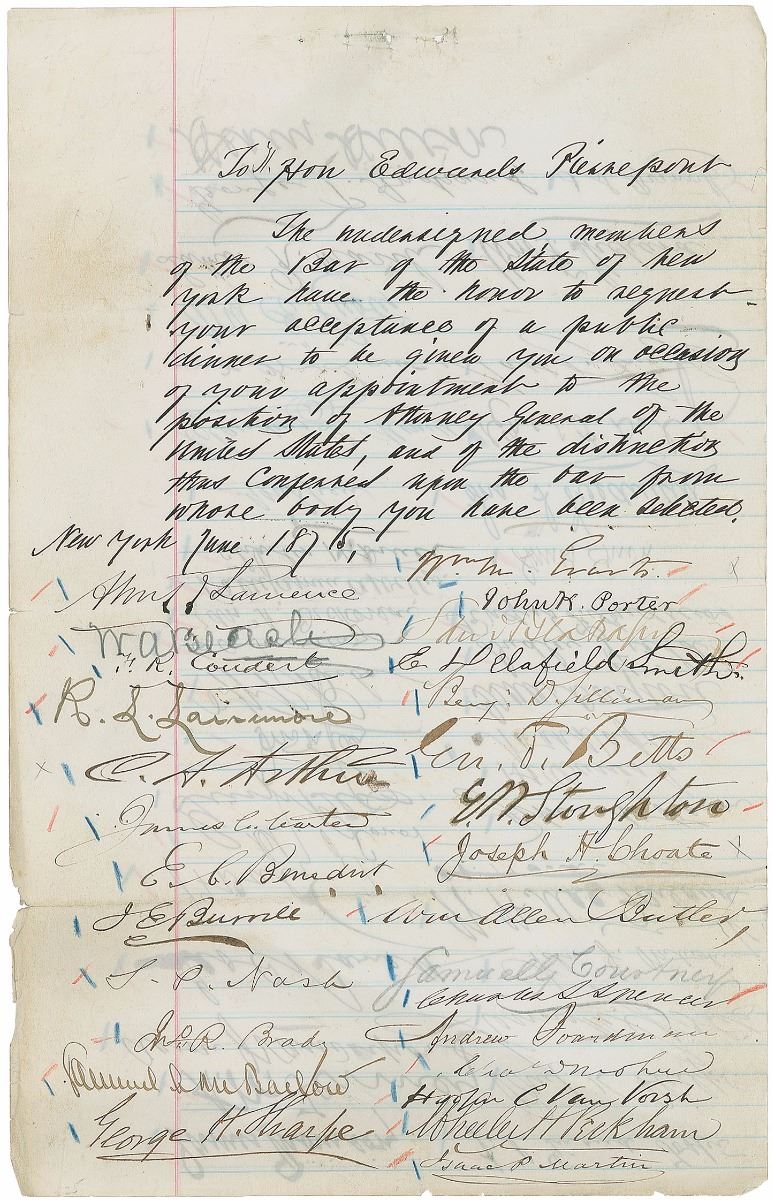 To Hon Edwards Pierrepont
The undersigned members
of the Bar of the State of New
York have the honor to request
your acceptance of a public
dinner to be given you on occasion
of your appointment to the
position of Attorney General of the
United States, and of the distinction
thus conferred upon the bar from
whose body you have been selected.
New York June 1875,
Wm M. Evarts
Lawrence
John K. Porter
W. A. Beach
F. R. Coudert
E Delafield Smith
R. L. Larremore
Benj. D. Silliman
C. A. Arthur
Geo. F. Betts
James C. Carter
E. W. Stoughton
E. C. Benedict
Joseph H. Choate
J E Burrill
Wm Allen Butler,
S. P. Nash
Samuel G Courtney
Charles S Spencer
Jno. R. Brady
Andrew Boardman
Samuel L M Barlow
Chas Donohue
Hooper C Van Vorst
George H. Sharpe
Wheeler H Peckham
Isaac P. Martin